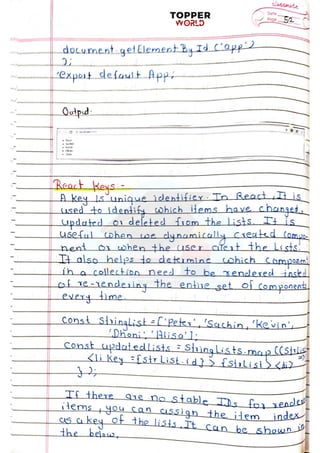 classmate
Date
Page 52
TOPPER
WORLD
document getElement By Id ('app')
);
export default App;
Output-
React Keys -
A key is unique identifier. In React, It is
used to identify which items have changed,
updated or deleted from the lists. It is
useful when we dynamically created compo-
nent or when the user alert the lists.
It also helps to determine which component
in a collection need to be rendered insted
of re-rendering the entire set of components
every time.
const StringList = ['Peter', 'Sachin, 'Kevin',
'Dhoni', 'Alisa'];
Const updatedlists = StringLists.map((StrLis
<li Key = {strList.id} > {strList} <li>
});
If there are no stable IDs for rendere
items, you can assign the item index
as a key of the lists. It can be shown in
the below,